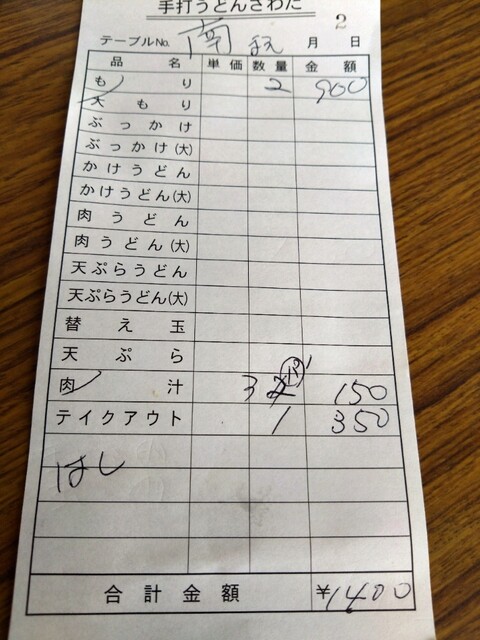 手打うどんさわだ
2
テーブルNo. 月 日
品 名 単価 数量 金 額
も り 2 900
大 も り
ぶっかけ
ぶっかけ(大)
かけうどん
かけうどん(大)
肉うどん
肉うどん(大)
天ぷらうどん
天ぷらうどん(大)
替え玉
天ぷら
肉 汁 3 150
テイクアウト 1 350
はし
合計金額 ¥1400